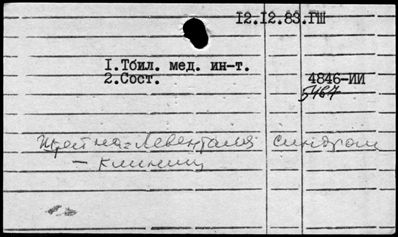 12.12.83.ГШ
1.Тбил. мед. ин-т.
2.Сост. 4846-ИИ
5467
Штейна-Левенталя синдром
— клиниц